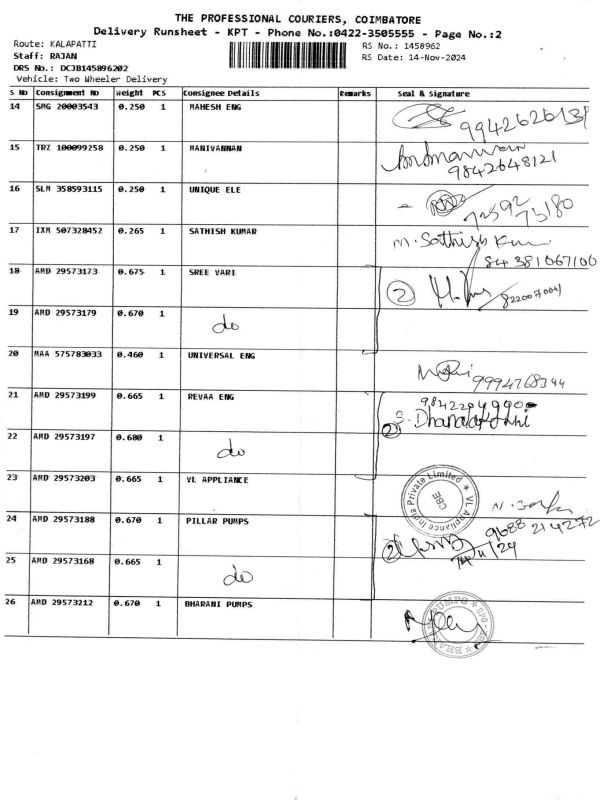 THE PROFESSIONAL COURIERS, COIMBATORE
Delivery Runsheet - KPT - Phone No.:0422-3505555 - Page No.:2
Route: KALAPATTI RS No.: 1458962
Staff: RAJAN RS Date: 14-Nov-2024
DRS No.: DCJB145896202
Vehicle: Two Wheeler Delivery
S No Consignment No Weight PCS Consignee Details Remarks Seal & Signature
14 SMG 20003543 0.250 1 MAHESH ENG
15 TRZ 100099258 0.250 1 MANIVANNAN
9842648121
16 SLM 358593115 0.250 1 UNIQUE ELE
72592
73180
17 IXM 507328452 0.265 1 SATHISH KUMAR M. Sathish
84381067100
18 AMD 29573173 0.675 1 SREE VARI 2
19 AMD 29573179 0.670 1 do
20 MAA 575783033 0.460 1 UNIVERSAL ENG 9994768344
21 AMD 29573199 0.665 1 REVAA ENG
2 S. Dhanalakshmi
22 AMD 29573197 0.680 1 do
23 AMD 29573203 0.665 1 VL APPLIANCE VL Appliance India Private Limited ★ CBE
24 AMD 29573188 0.670 1 PILLAR PUMPS 9688 214272
2 14/11/24
25 AMD 29573168 0.665 1 do
26 AMD 29573212 0.670 1 BHARANI PUMPS